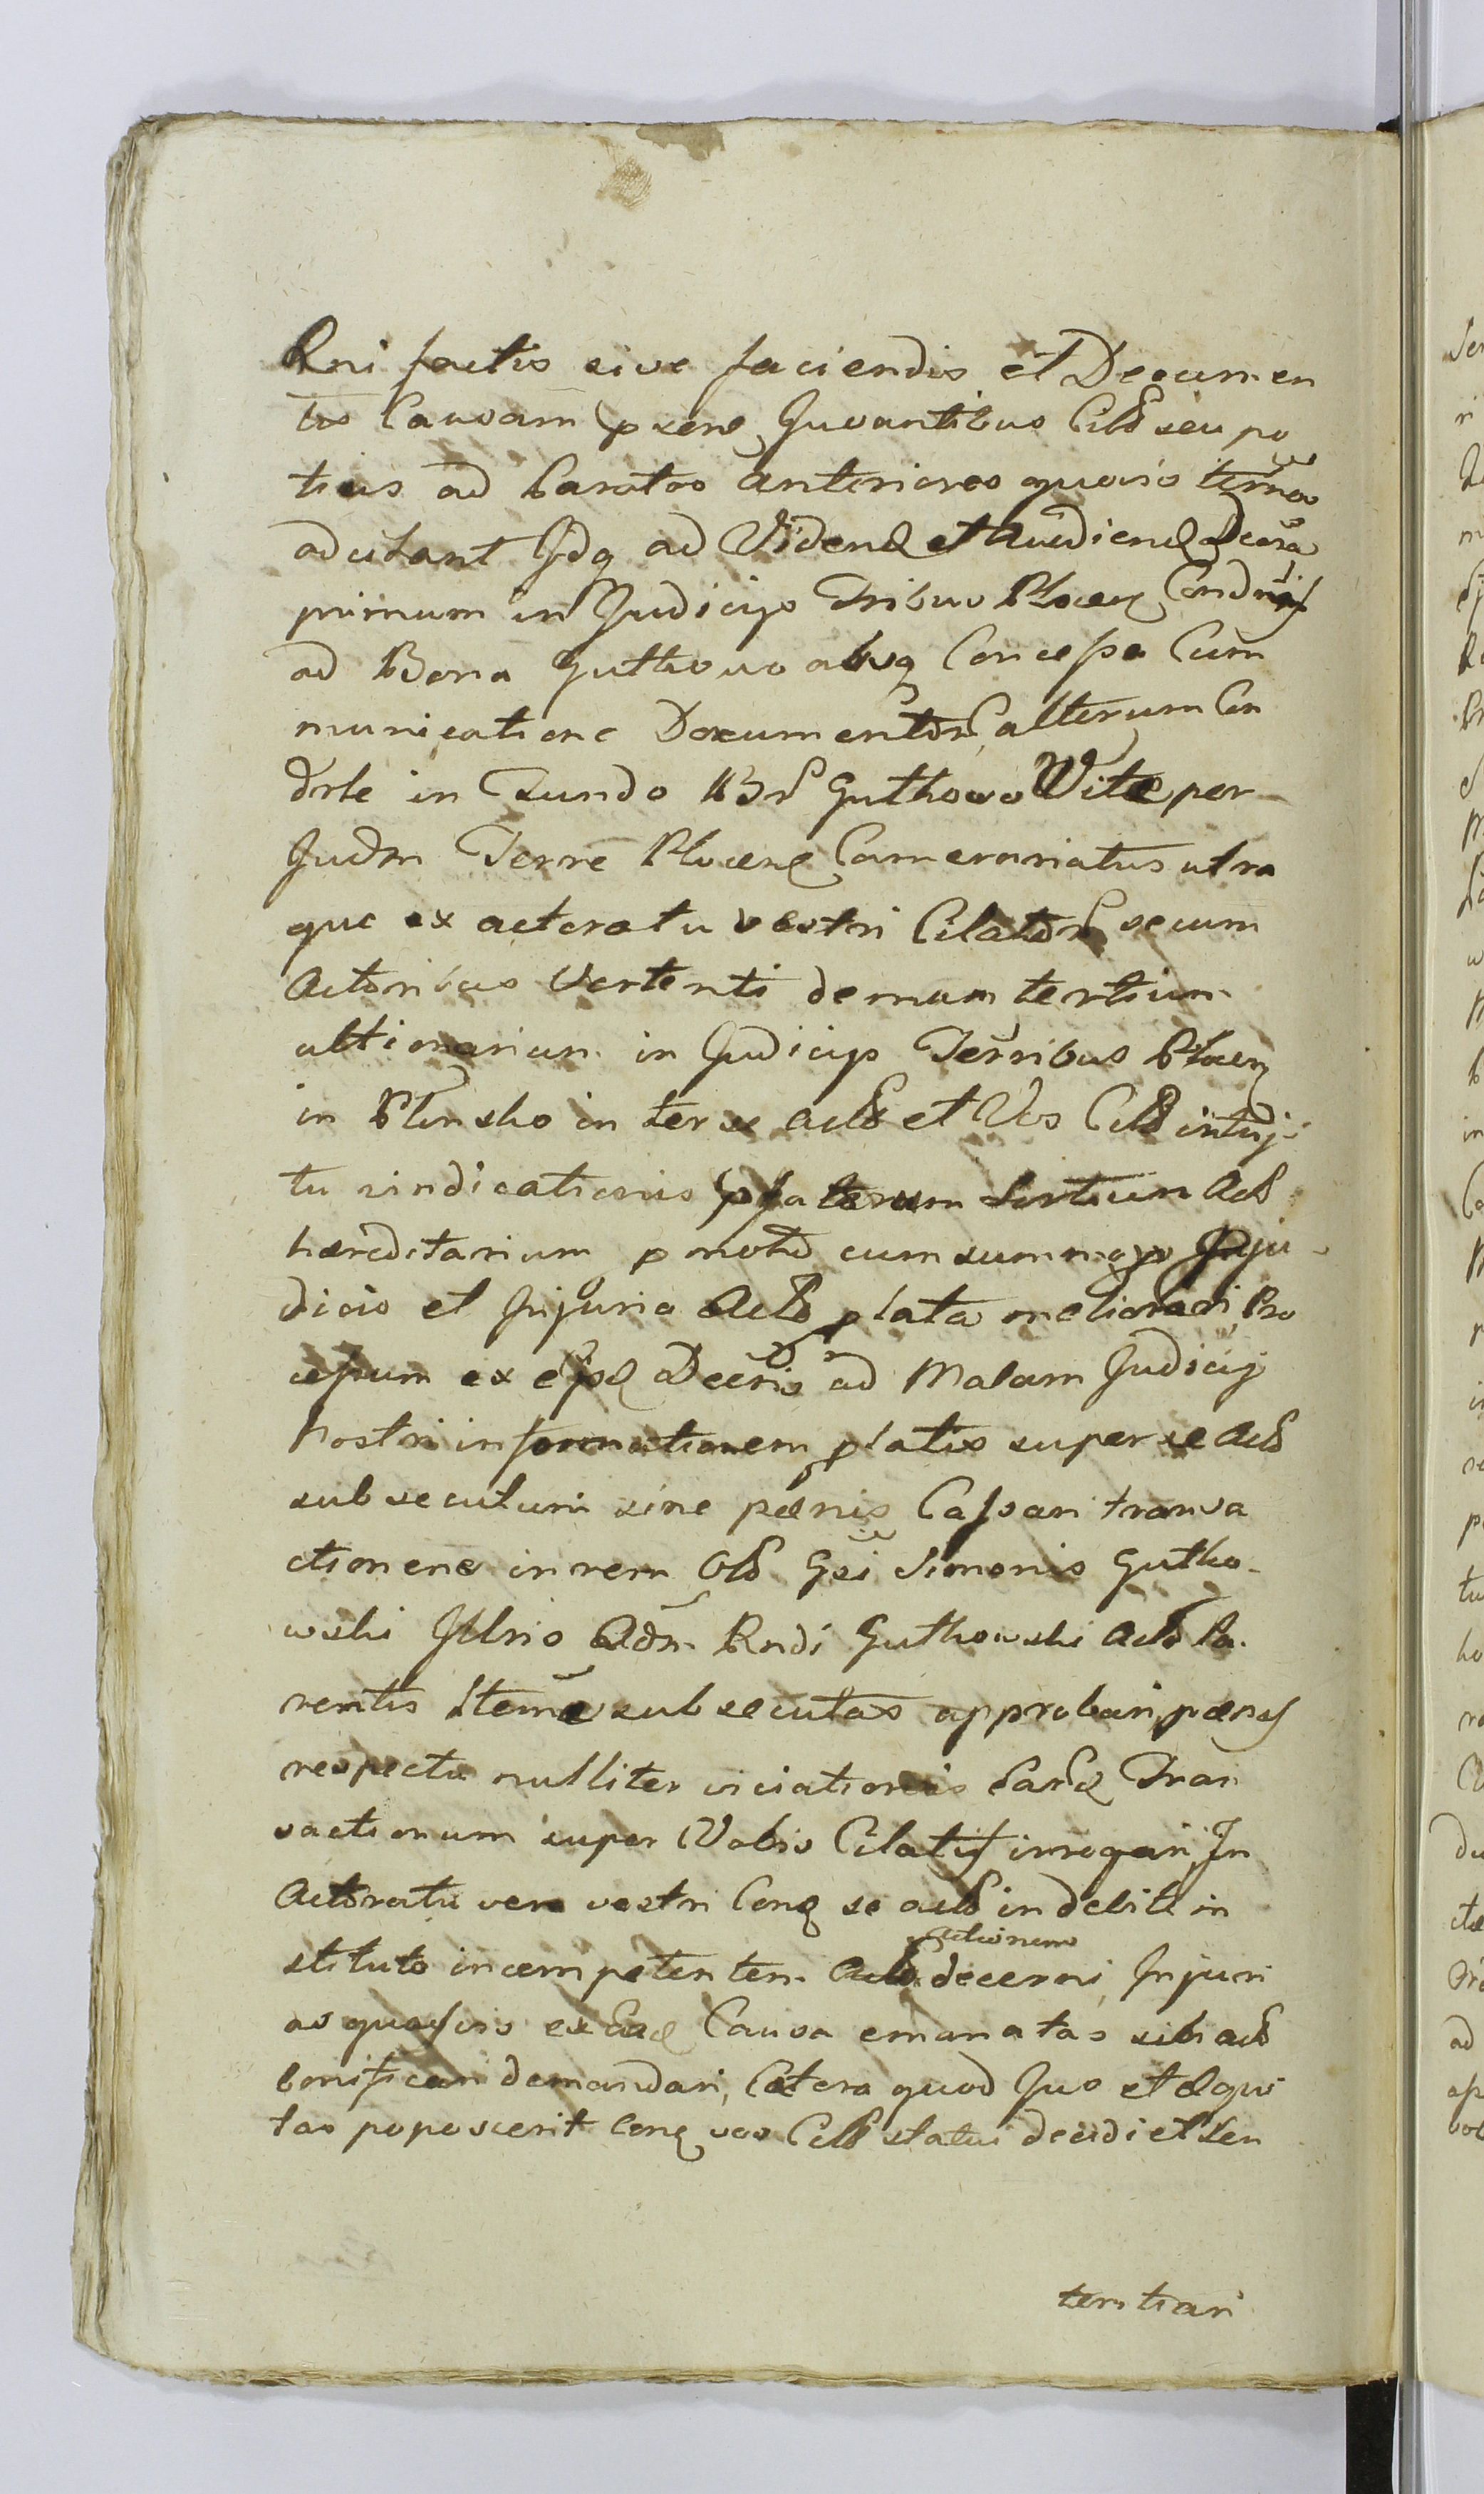 Rni factis sive faciendis et Documen
tis Causam pxens Juvantibus Citt seu po
tius ad Caratos anteriores quovis termos
adcitant Idq ad Vidend et Audiend Decora
primum in Judicijs Tribus Plocen Condnij
ad Bona Guthowo absq Concessa Com
municatione Documentor, alterum Con
drle in Fundo Bnr Guthowo Vite per
Judm Terre Plocens Camerariatus utra
que ex actoratu vestri Citator secum
Actoribus Vertenti demum tertium
ultimarium in Judicijs Terribus Plocen
in Plonsko inter se acts et Vos Citt intuj
tu vindicationis pfaterum Sortium Acts
hæreditarium p motd cum summo p Preju
dicio et Injuria Acts plata meliorari, Pro
cessum ex ejsd Decris ad Malam Judicij
Nostri informationem platis super se Acts
subsecuturi sine pænis Cassari transa
ctionens in rem Olt Gsi Simonis Gutho
wski Illrio Adm Rndi Guthowski Acts Pa
rentis Item subsecutas approbari, pænas
respectu nulliter viciationis Eard Tran
sactionum super Vobis Citatis irrogari, In
Actoratu vero vestri Conq se acts indebite in
stituto incompetentem Acts actionem decerni, Injuri
as quasvis ex Ead Causa emanatas sibi acts
bonificari demandari, Cætera quod Jus et Æqui
tas poposcerit Conq vos Citt statui decidi et Sen
tentiari